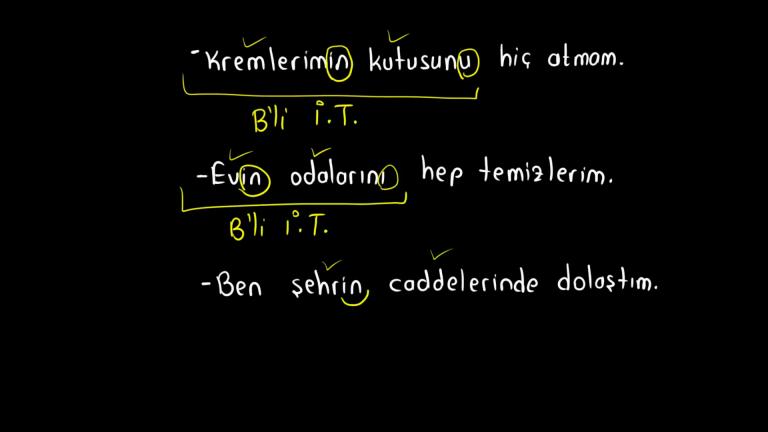 -Kremlerimin kutusunu hiç atmam.
B'li İ.T.
-Evin odalarını hep temizlerim.
B'li İ.T.
-Ben şehrin caddelerinde dolaştım.